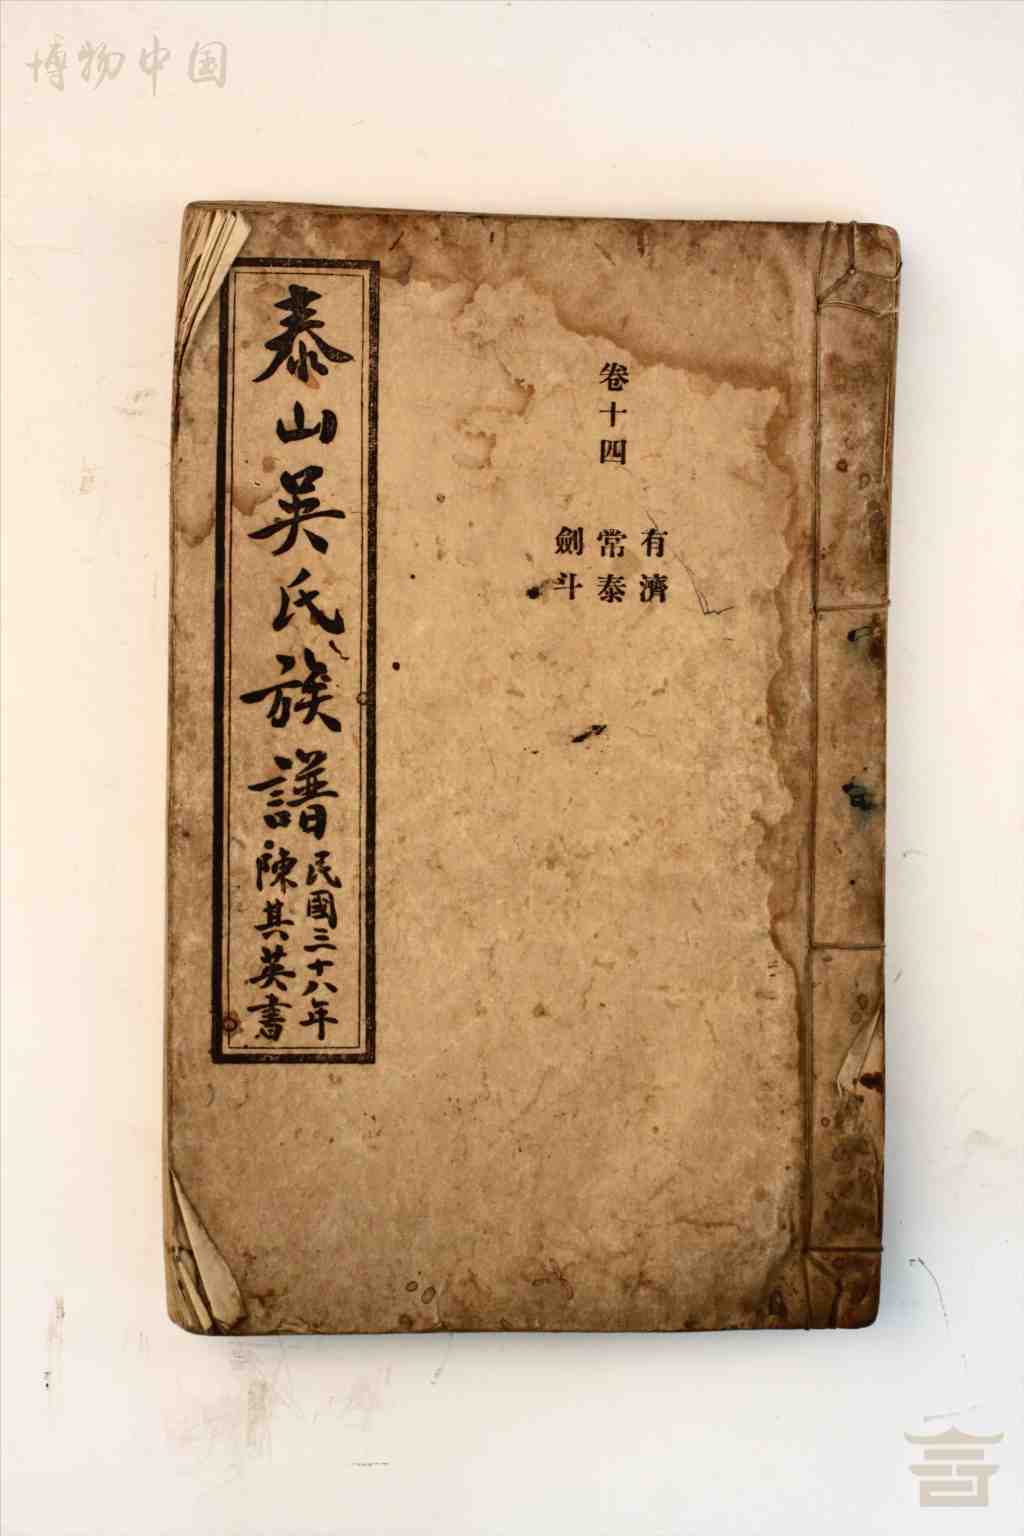 博物中国
卷十四
有濟
常泰
劍斗
泰山吴氏族譜
民國三十八年
陳其英書